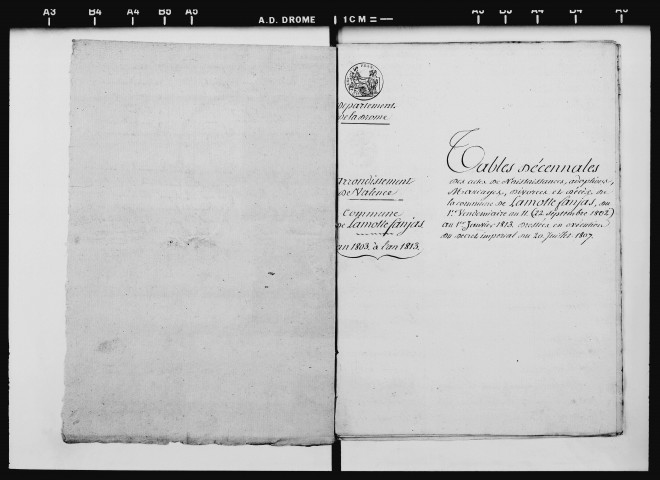 A3 B4 A4 B5 A5
A.D. DROME 1 CM
A5 B5 A4 B4 A3
Département
de la Drome
arrondissement
de Valence
Commune
de Lamotte fanjas
an 1803. à l'an 1813.
Tables décennales
des actes de Naissances, adoptions,
Mariages, divorces et décès, de
la commune de Lamotte fanjas, du
1er Vendemiaire an 11. (22 septembre 1802)
au 1er Janvier 1813. dressées en execution
du décret imperial du 20 Juillet 1807.